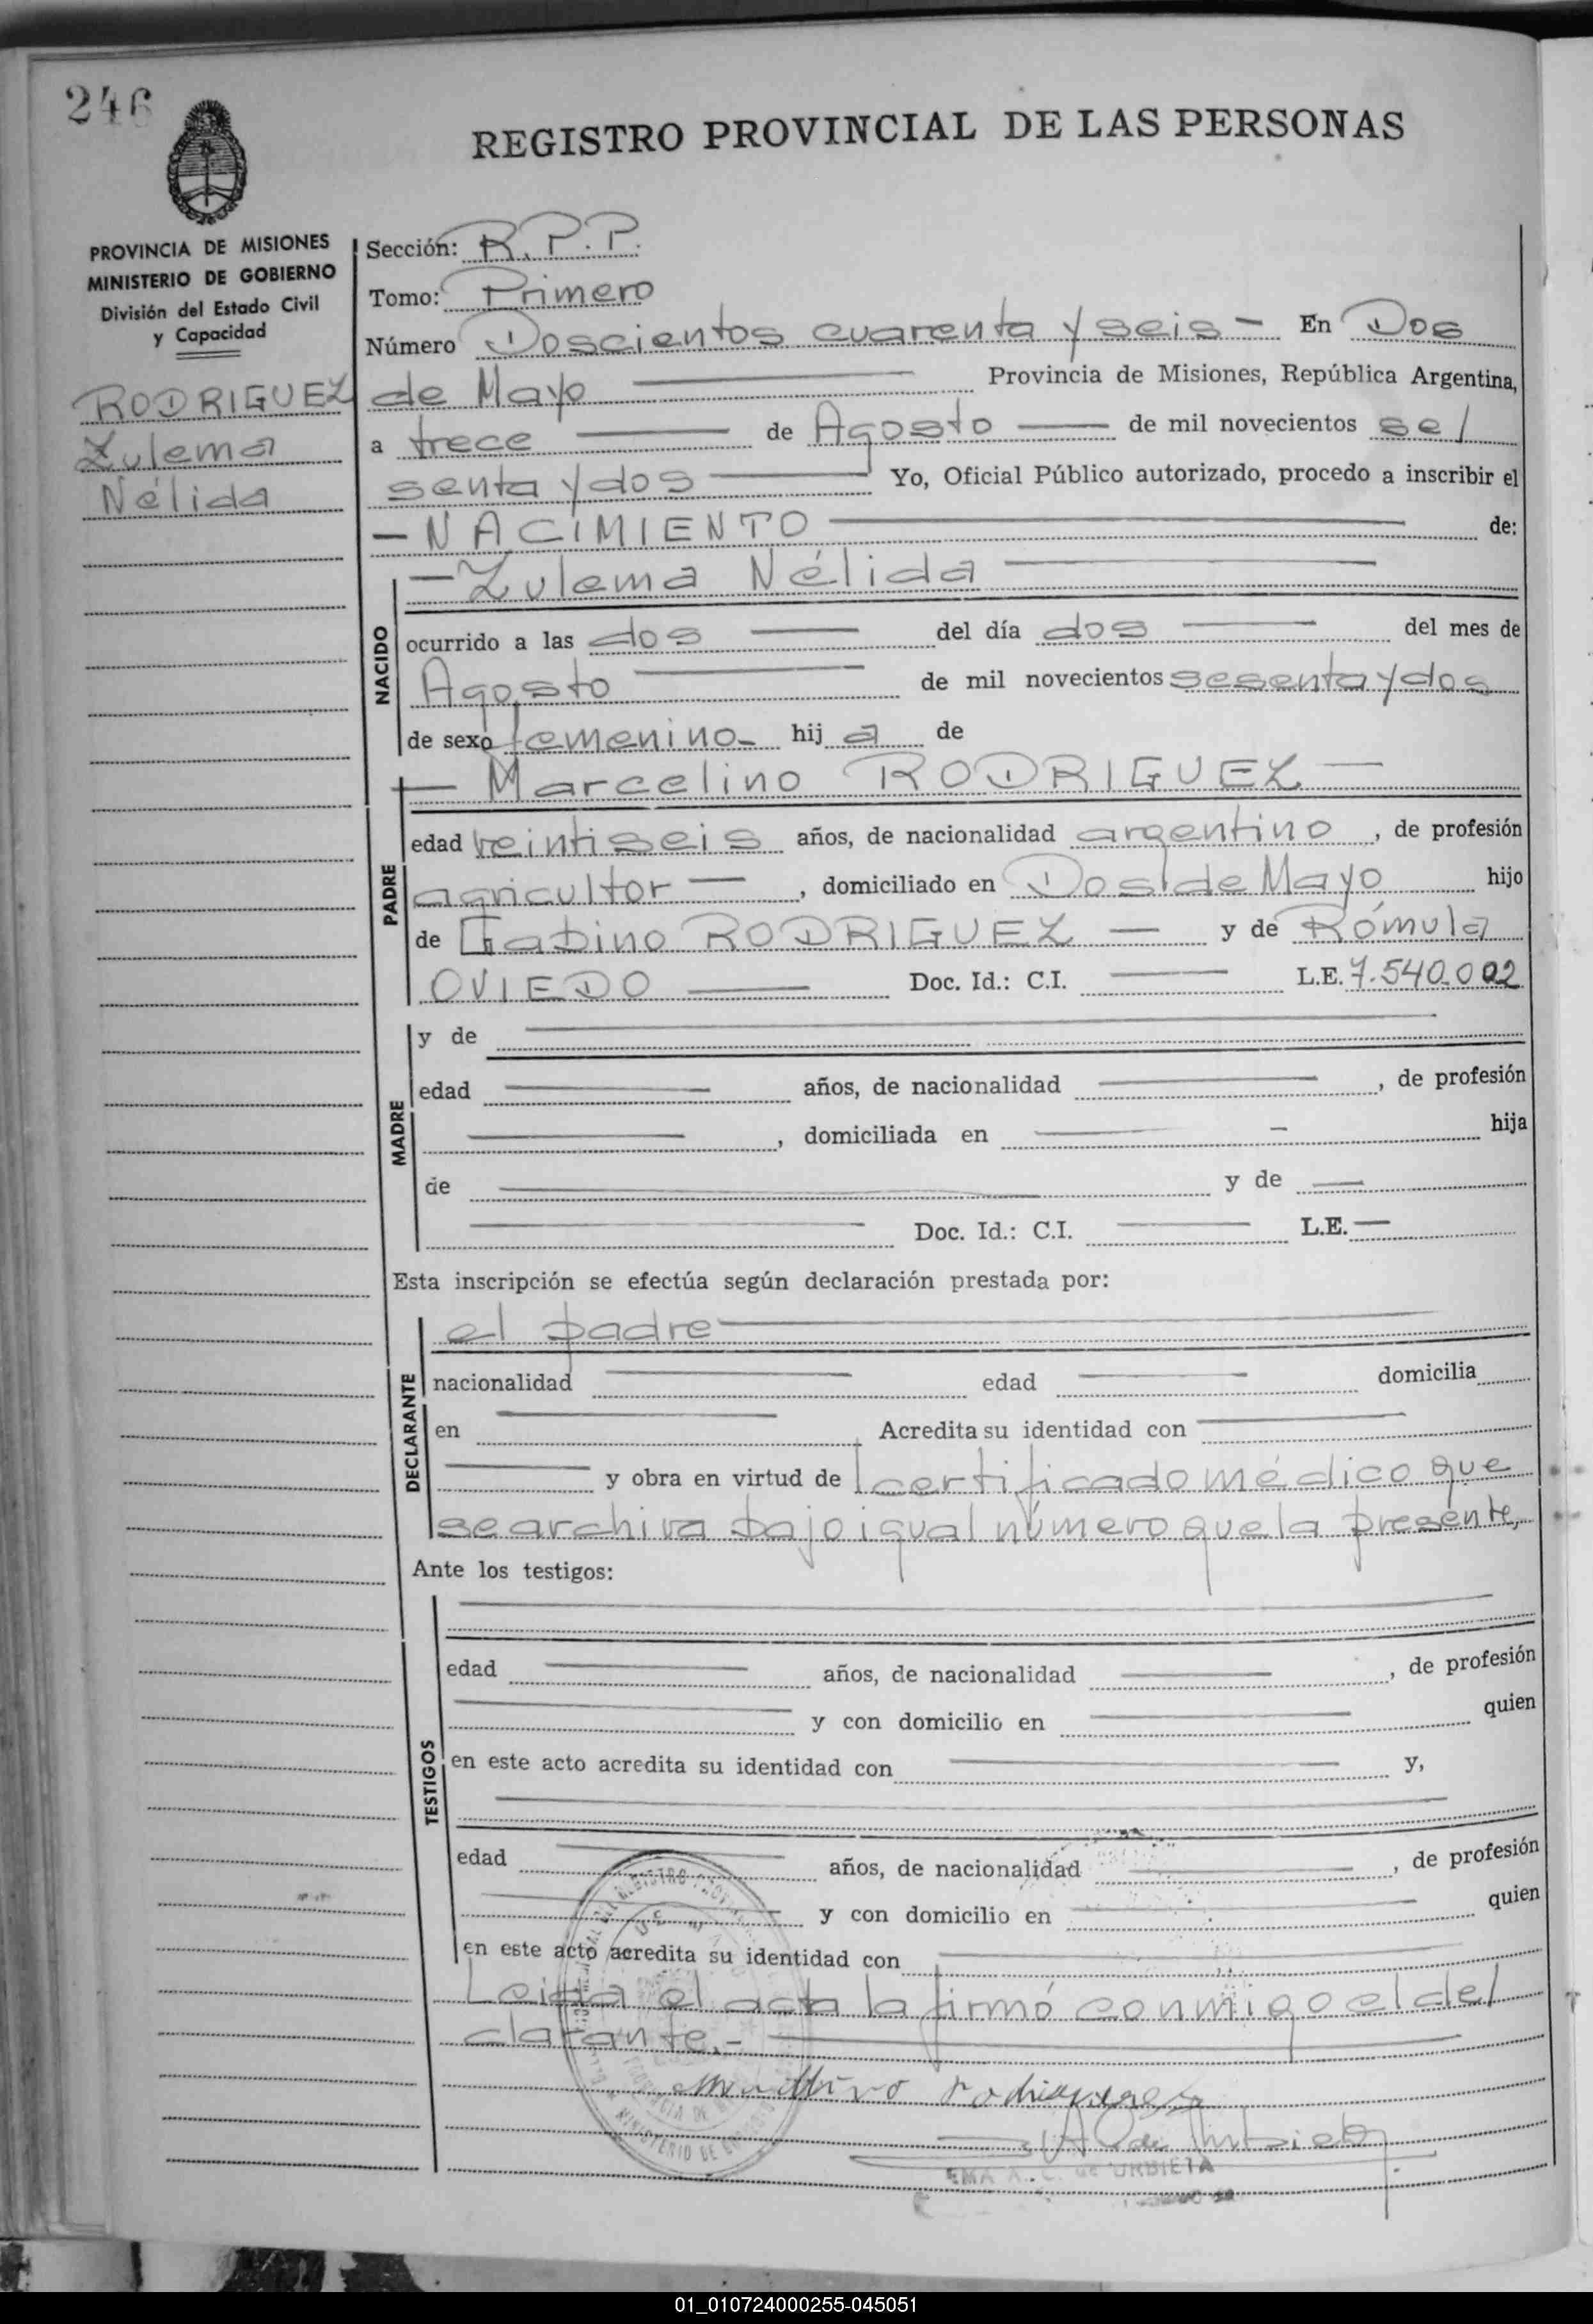 246
REGISTRO PROVINCIAL DE LAS PERSONAS
PROVINCIA DE MISIONES
MINISTERIO DE GOBIERNO
División del Estado Civil
y Capacidad
RODRIGUEZ
Zulema
Nélida
Sección: R.P.P.
Tomo: Primero
Número Doscientos cuarenta y seis - En Dos
de Mayo Provincia de Misiones, República Argentina,
a trece de Agosto de mil novecientos se/
senta y dos Yo, Oficial Público autorizado, procedo a inscribir el
- NACIMIENTO de:
NACIDO
- Zulema Nélida
ocurrido a las dos del día dos del mes de
Agosto de mil novecientos sesenta y dos
de sexo femenino- hij a de
PADRE
- Marcelino RODRIGUEZ -
edad veintiseis años, de nacionalidad argentino, de profesión
agricultor -, domiciliado en Dos de Mayo hijo
de Gabino RODRIGUEZ - y de Rómula
OVIEDO Doc. Id.: C.I. L.E. 7.540.002
MADRE
y de
edad años, de nacionalidad , de profesión
, domiciliada en hija
de y de
Doc. Id.: C.I. L.E.
Esta inscripción se efectúa según declaración prestada por:
DECLARANTE
el padre
nacionalidad edad domicilia
en Acredita su identidad con
y obra en virtud de certificado médico que
se archiva bajo igual número que la presente,
Ante los testigos:
TESTIGOS
edad años, de nacionalidad , de profesión
y con domicilio en quien
en este acto acredita su identidad con y,
edad años, de nacionalidad , de profesión
y con domicilio en quien
en este acto acredita su identidad con
Leida el acta la firmó conmigo el de/
clarante.-
rodriguez
de Urbieta
EMA A. C. de URBIETA
MINISTERIO DE
01_010724000255-045051